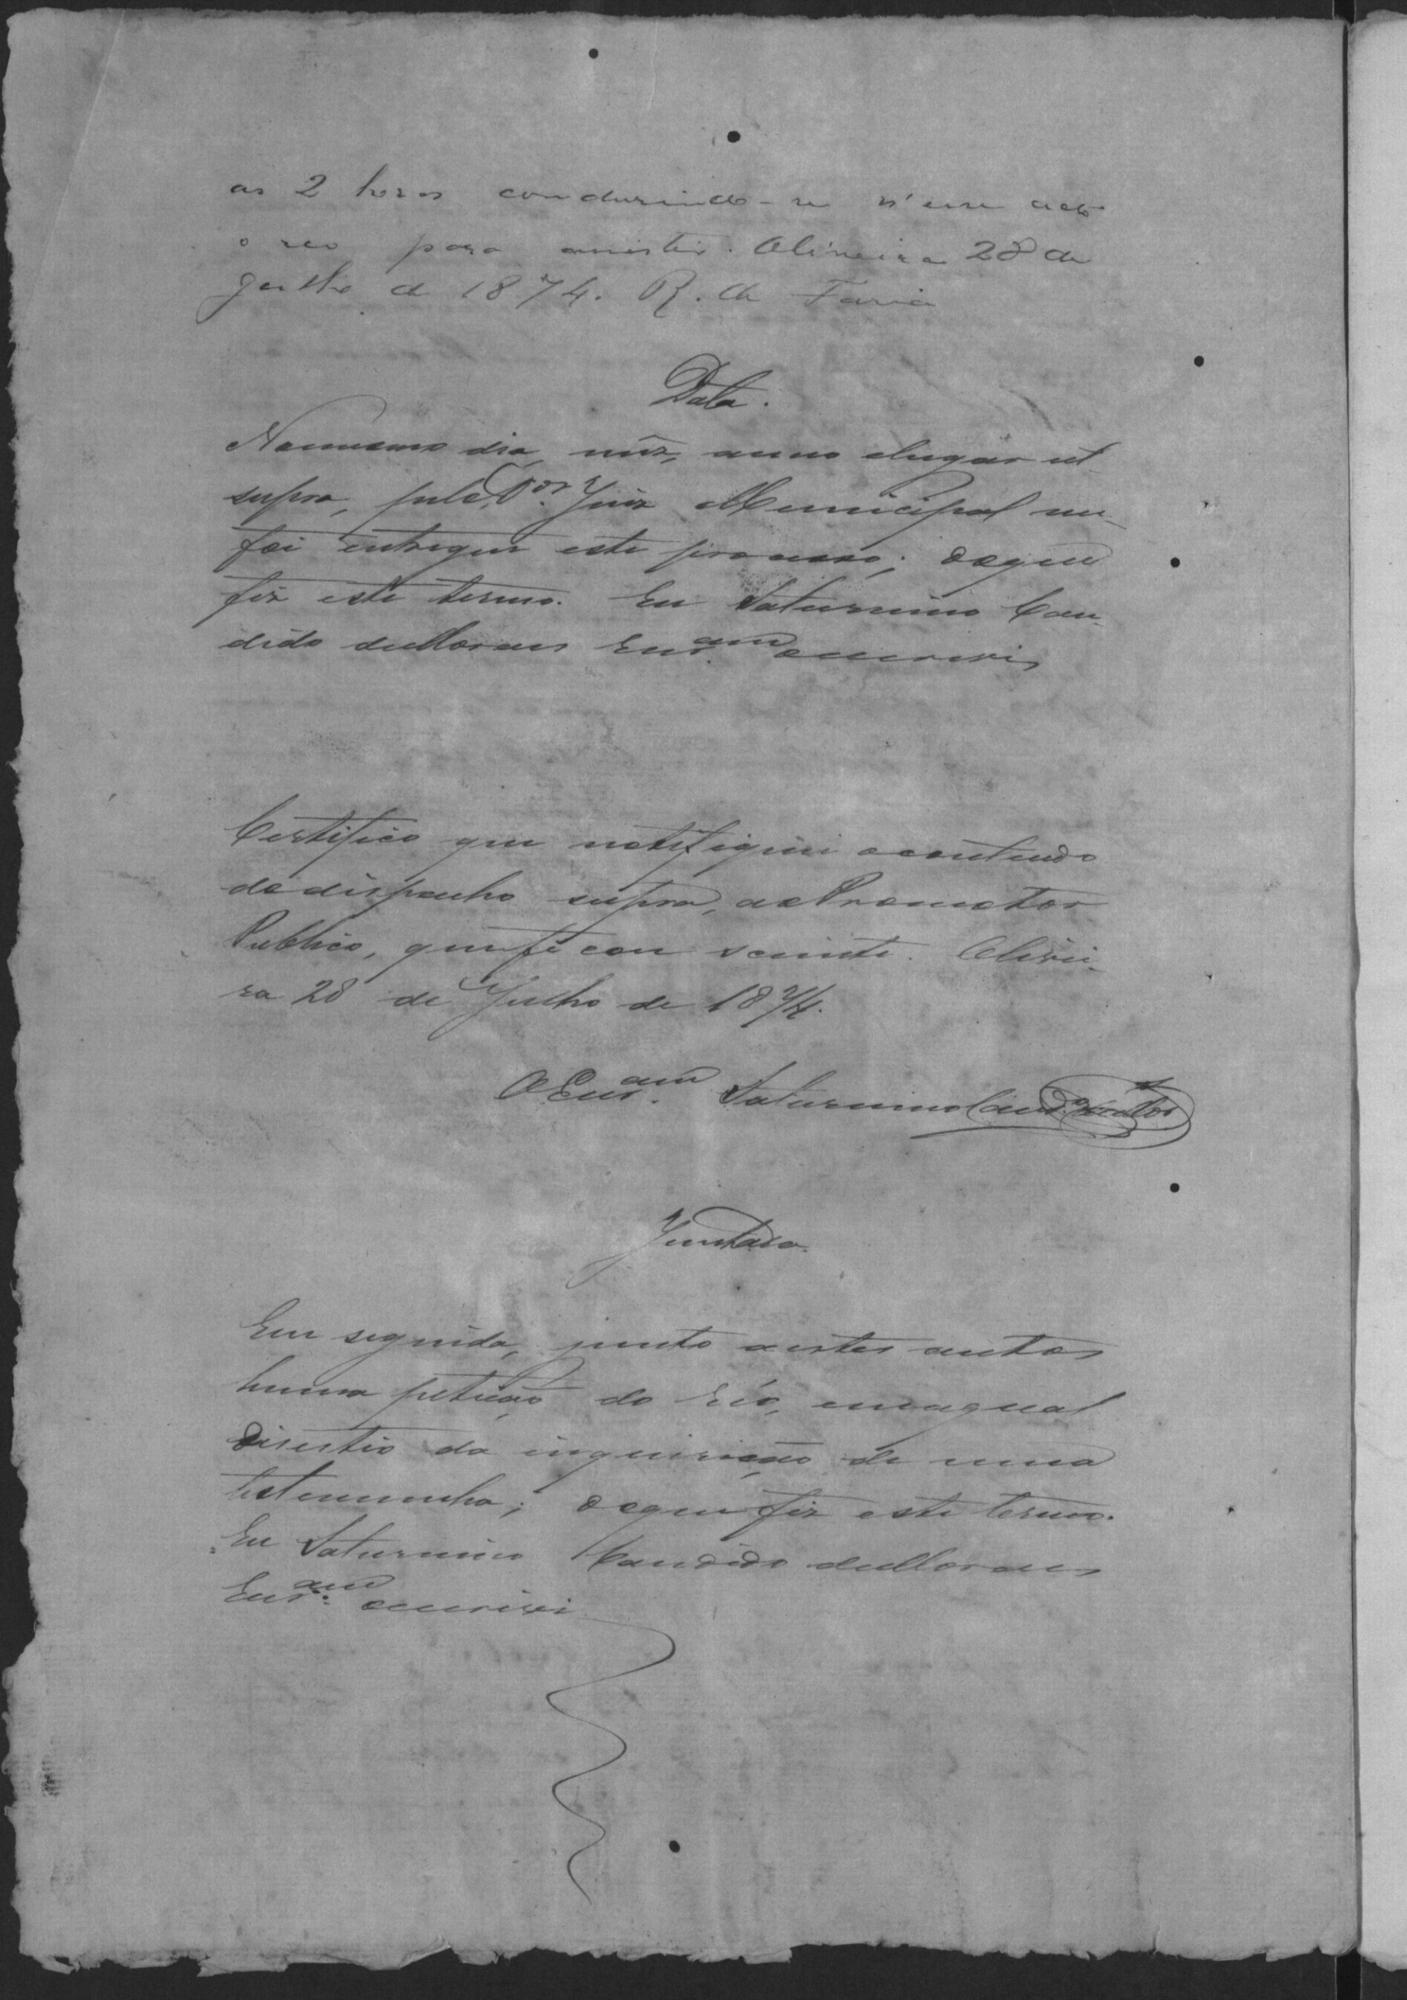 as 2 horas conduzindo-se n'esse acto
o reo para assistir. Oliveira 28 de
Julho de 1874. R. de Faria
Data.
No mesmo dia, mez, anno elugar ut
supra, pelo Dor. Juiz Municipal me
foi entregue este processo; doque
fiz este termo. Eu Saturnino Can-
dido de Moraes Escr.am o escrevi
Certifico que notifiquei ocontiudo
do dispacho supra, ao Promotor
Publico, que ficou sciente. Olivei-
ra 28 de Julho de 1874.
O Escr.am Saturnino Cand.o
Juntada.
Em seguida, junto aestes autos
huma petição do réo, emaqual
disestio da inquirição de uma
testemunha; doque fiz este termo.
Eu Saturnino Candido de Moraes
Escr.am o escrevi